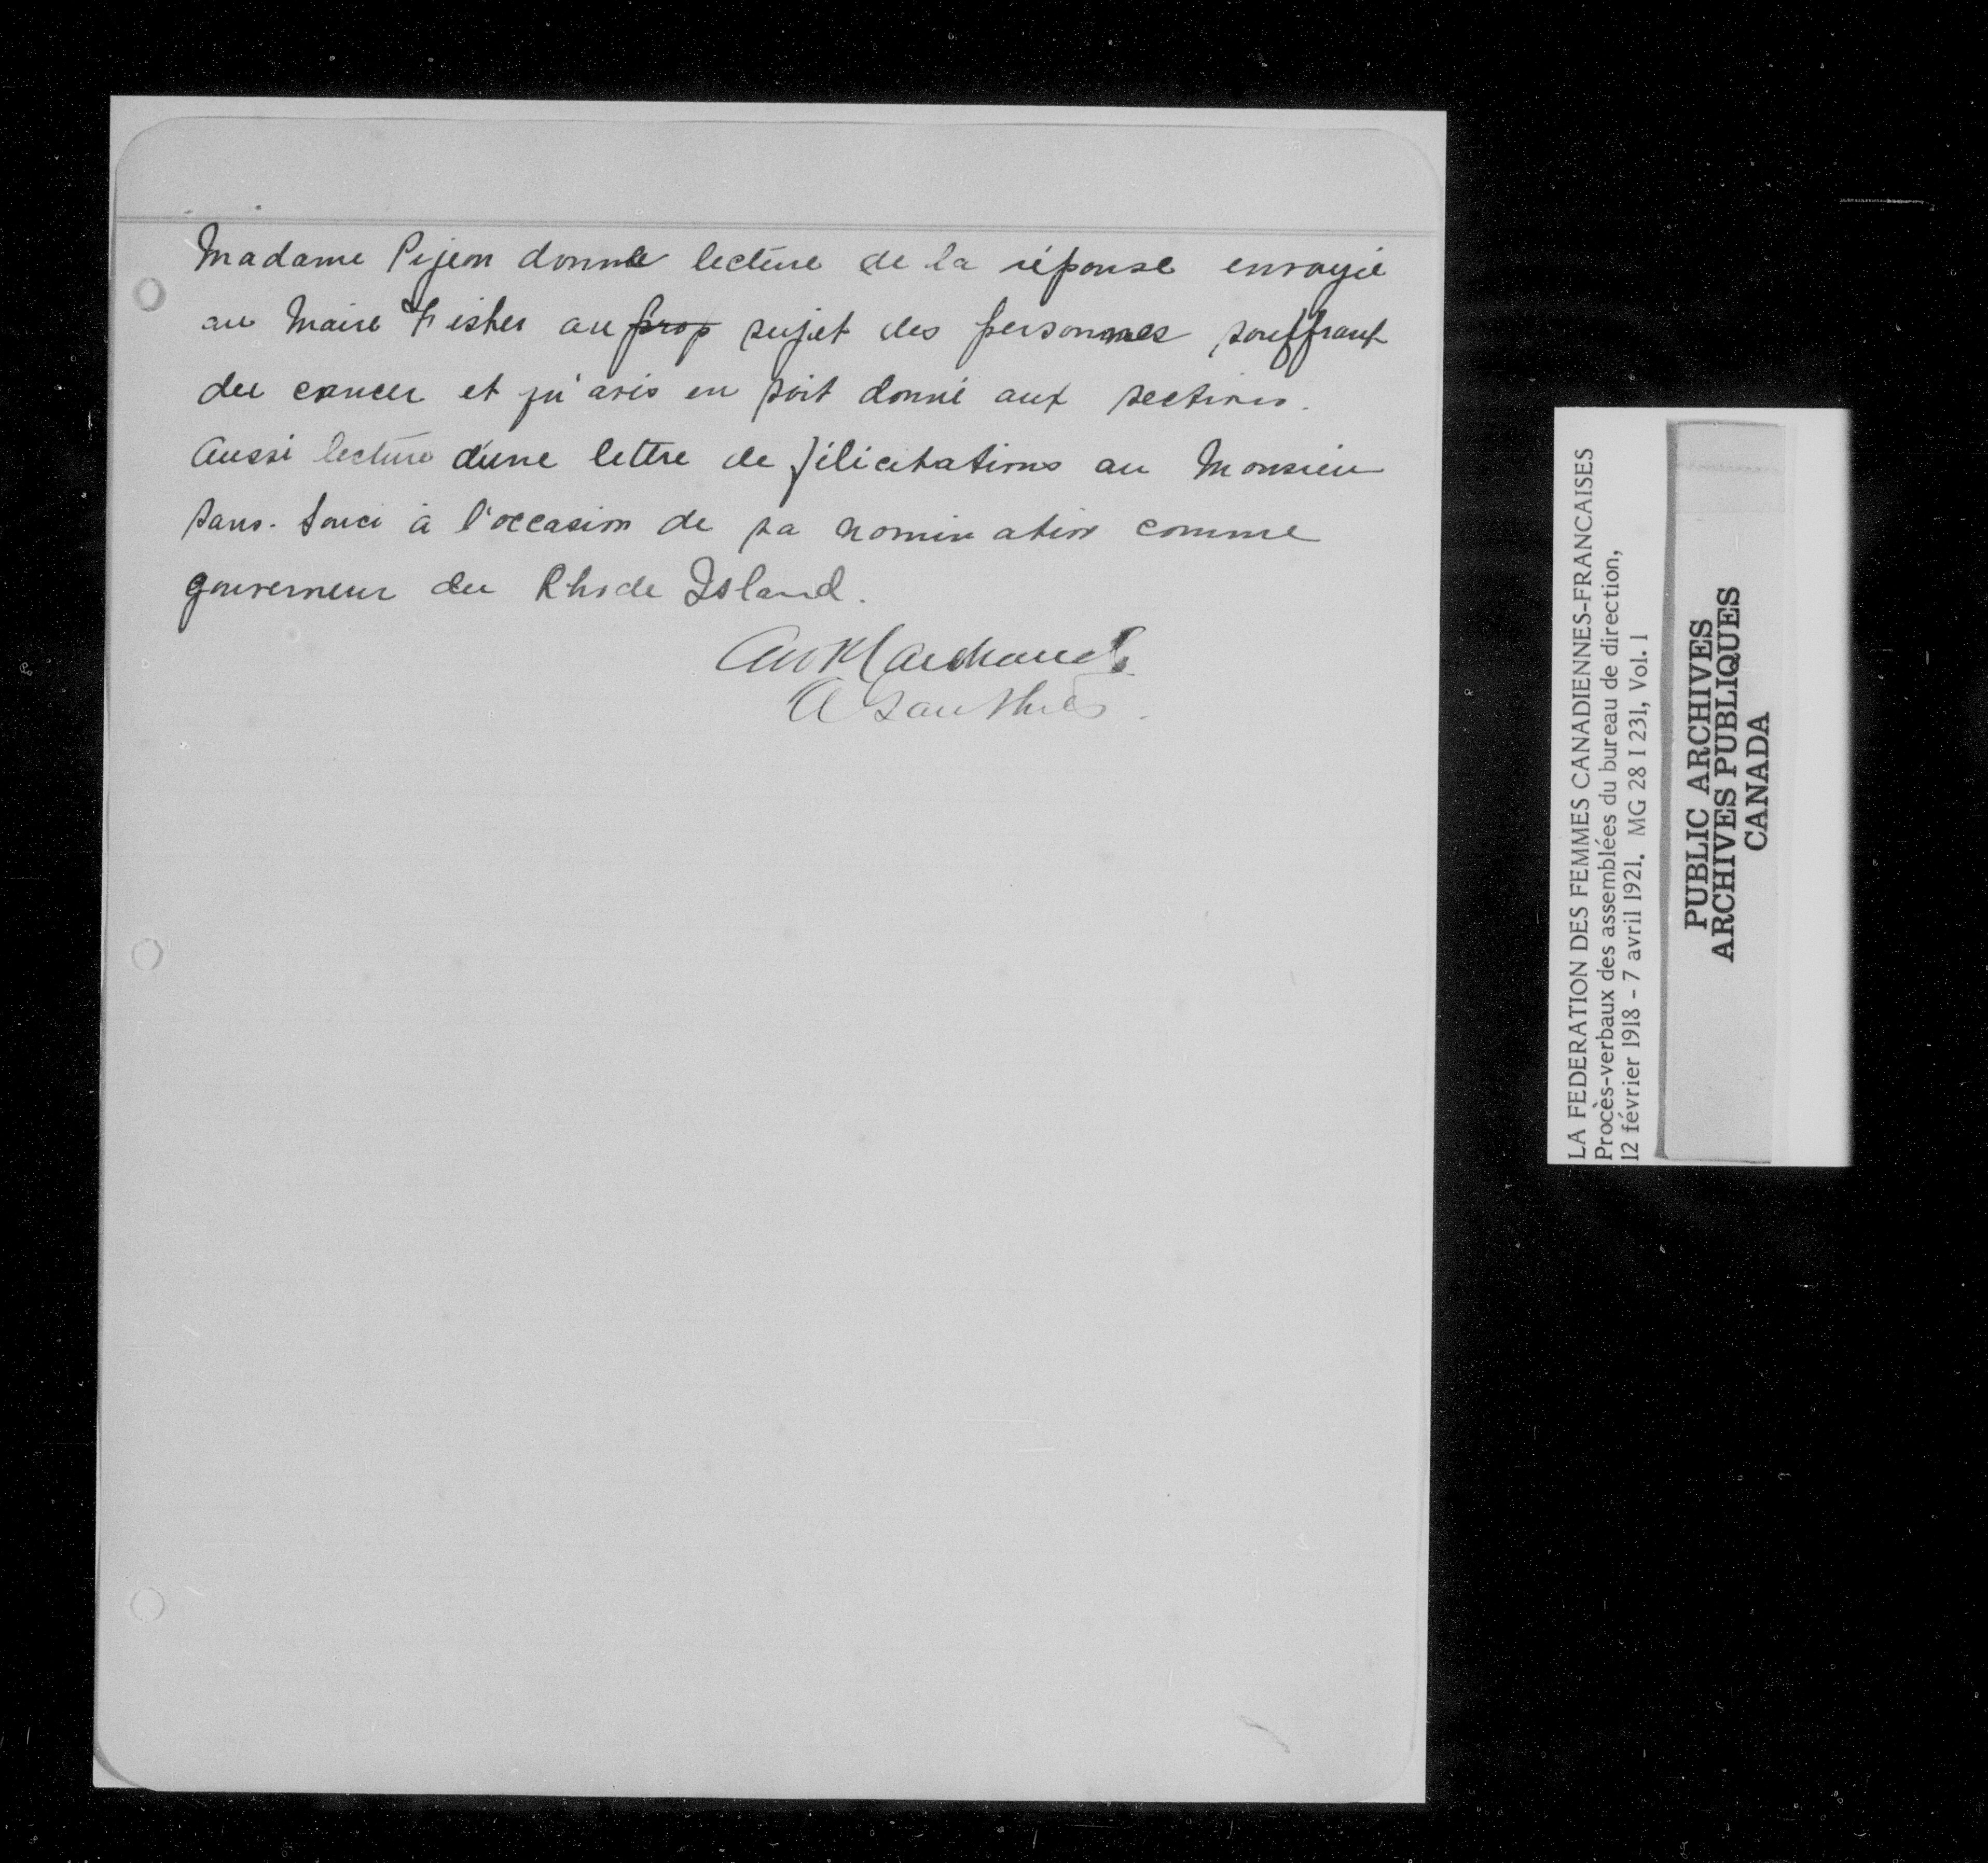 Madame Pijeon donne lecture de la réponse envoyée
au Maire Fisher au prop sujet des personnes souffrant
du cancer et qu'avis en soit donné aux sections.
Aussi lecture d'une lettre de félicitations au Monsieur
Sans-Souci à l'occasion de sa nomination comme
gouverneur du Rhode Island.
Marchand
A Gauthier.
LA FEDERATION DES FEMMES CANADIENNES-FRANCAISES
Procès-verbaux des assemblées du bureau de direction,
12 février 1918 - 7 avril 1921. MG 28 I 231, Vol. 1
PUBLIC ARCHIVES
ARCHIVES PUBLIQUES
CANADA